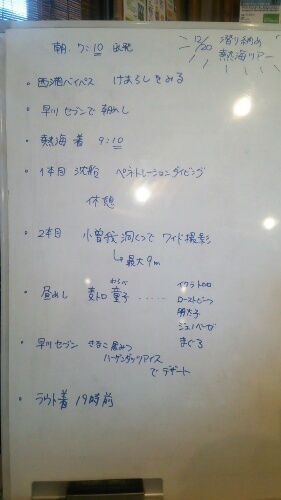 朝 7:10 出発
12/20 潜り納め
熱海ツアー
・西湘バイパス けあらしをみる
・早川セブンで朝めし
・熱海着 9:10
・1本目 沈船 ペネトレーションダイビング
休憩
・2本目 小曽我洞くつで ワイド撮影
↳最大9m
・昼めし 麦トロ 童子 ‥‥‥ イクラトロロ
わらべ
ローストビーフ
明太子
ジェノベーゼ
まぐろ
・早川セブン きなこ黒みつ
ハーゲンダッツアイス
でデザート
・ラウト着 19時前